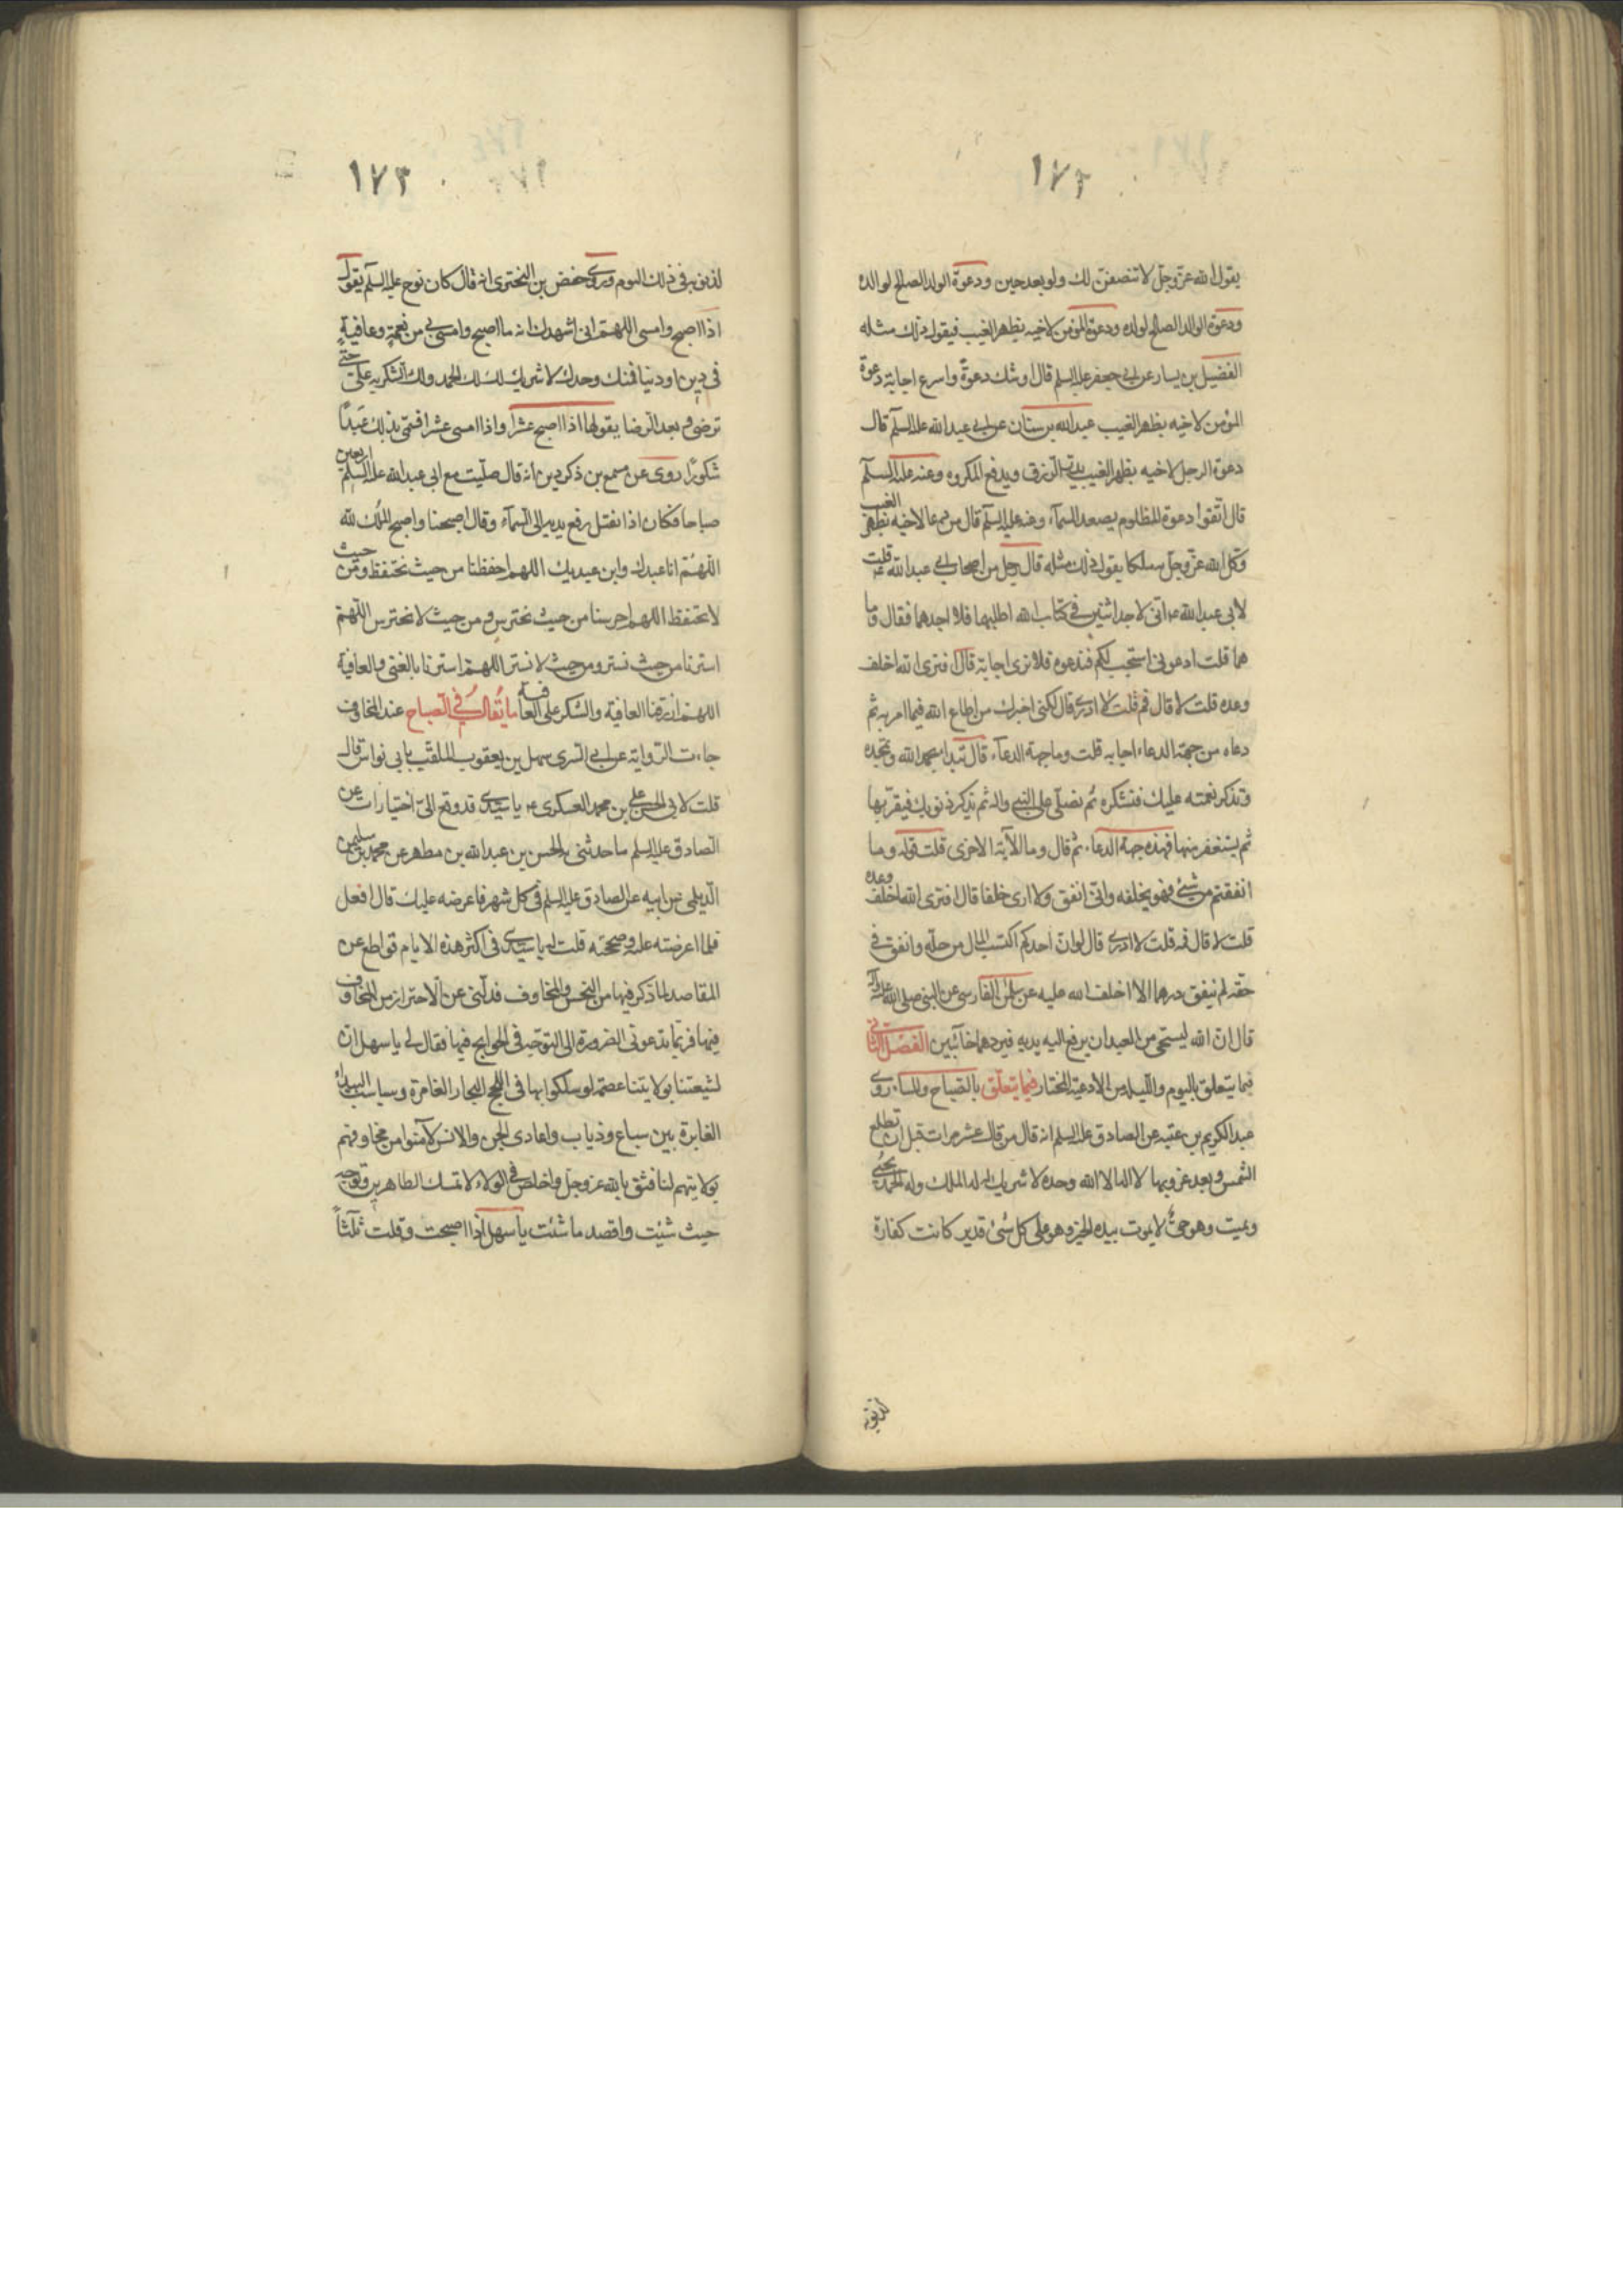 ١٧٢
يقول الله عز وجل لانتصفن لك ولو بعد حين ودعوة الولد الصالح لوالده
ودعوة الوالد الصالح لولده ودعوة المؤمن لاخيه بظهر الغيب فيقول ولك مثله
الفضيل بن يسار عن ابي جعفر عليه السلم قال اوشك دعوة واسرع اجابة دعوة
المؤمن لاخيه بظهر الغيب عبد الله بن سنان عن ابي عبد الله عليه السلم قال
دعوة الرجل لاخيه بظهر الغيب يدر الرزق ويدفع المكروه وعنه عليه السلم
قال اتقوا دعوة المظلوم يصعد السماء وعنه عليه السلم قال من دعا لاخيه بظهر الغيب
وكل الله عز وجل ملكا يقول ولك مثله قال رجل من اصحاب ابي عبد الله ع قلت
لابي عبد الله ع انى لاجد اثنين في كتاب الله اطلبهما فلا اجدهما فقال وما
هما قلت ادعوني استجب لكم فندعوه فلا نرى اجابة قال افترى الله اخلف
وعده قلت لا قال فمم قلت لا ادري قال لكنى اخبرك من اطاع الله فيما امر به ثم
دعاه من جهة الدعاء اجابه قلت وما جهة الدعاء قال تبدا فتحمد الله وتمجده
وتذكر نعمته عليك فتشكره ثم تصلى على النبي واله ثم تذكر ذنوبك فتقر بها
ثم يستغفر منها فهذه جهة الدعاء ثم قال وما الآية الاخرى قلت قوله وما
انفقتم من شئ فهو يخلفه وانى انفق ولا ارى خلفا قال افترى الله اخلف وعده
قلت لا قال فمه قلت لا ادري قال لو ان احدكم اكتسب المال من حله وانفق في
حقه لم ينفق درهما الا اخلف الله عليه عن سلمن الفارسي عن النبي صلى الله عليه واله
قال ان الله ليستحي من العبد ان يرفع اليه يديه فيردهما خائبين الفصل الثاني
فيما يتعلق باليوم والليلة من الادعية المختار فيما يتعلق بالصباح والمساء روى
عبد الكريم بن عتبه عن الصادق عليه السلم انه قال من قال عشر مرات قبل ان تطلع
الشمس وبعد غروبها لا اله الا الله وحده لا شريك له له الملك وله الحمد يحيى
ويميت وهو حي لا يموت بيده الخير وهو على كل شئ قدير كانت كفارة
لذنوبه
١٧٣
لذنوبه في ذلك اليوم وروى حفص بن البخترى انه قال كان نوح عليه السلم يقول
اذا اصبح وامسى اللهم انى اشهدك انه ما اصبح وامسى بي من نعمة وعافية
في دين او دنيا فمنك وحدك لا شريك لك لك الحمد ولك الشكر به على حتى
ترضى وبعد الرضا يقولها اذا اصبح عشرا واذا امسى عشرا فسمى بذلك عبدا
شكورا روى عن مسمع بن ذكردين انه قال صليت مع ابي عبد الله عليه السلم اربعين
صباحا فكان اذا نفتل رفع يديه الى السماء وقال اصبحنا واصبح الملك لله
اللهم انا عبدك وابن عبديك اللهم احفظنا من حيث نحتفظ ومن حيث
لا نحتفظ اللهم احرسنا من حيث نحترس ومن حيث لا نحترس اللهم
استرنا من حيث نستر ومن حيث لا نستر اللهم استرنا بالغنى والعافية
اللهم ارزقنا العافية والشكر على العافية ما يقال في الصباح عند المخاوف
جاءت الرواية عن ابي السرى سهل بن يعقوب الملقب بابي نواس قال
قلت لابي الحسن على بن محمد العسكرى ع يا سيدى قد وقع الى اختيارات عن
الصادق عليه السلم ما حدثنى به الحسن بن عبد الله بن مطهر عن محمد بن سليمن
الديلمى عن ابيه عن الصادق عليه السلم في كل شهر فاعرضه عليك قال افعل
فلما اعرضته عليه وصححته قلت له يا سيدي في اكثر هذه الايام قواطع عن
المقاصد لما ذكر فيها من النحس والمخاوف فدلنى عن الاحتراز من المخاوف
فيها فربما تدعونى الضرورة الى التوجه في الحوايج فيها فقال لي يا سهل ان
لشيعتنا بولايتنا عصمة لو سلكوا بها في اللجج البحار الغامرة وسباسب البيداء
الغابرة بين سباع وذياب واعادى الجن والانس لامنوا من مخاوفهم
بولايتهم لنا فثق بالله عز وجل واخلص في الولاء لائمتك الطاهرين وتوجه
حيث شئت واقصد ما شئت يا سهل اذا اصبحت وقلت ثلثا